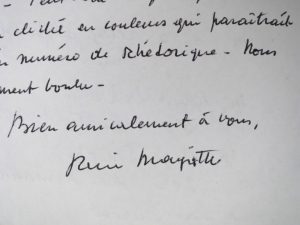 cliché en couleurs qui paraîtrait
numéro de Rhétorique - Nous
ment voulu -
Bien amicalement à vous,
René Magritte